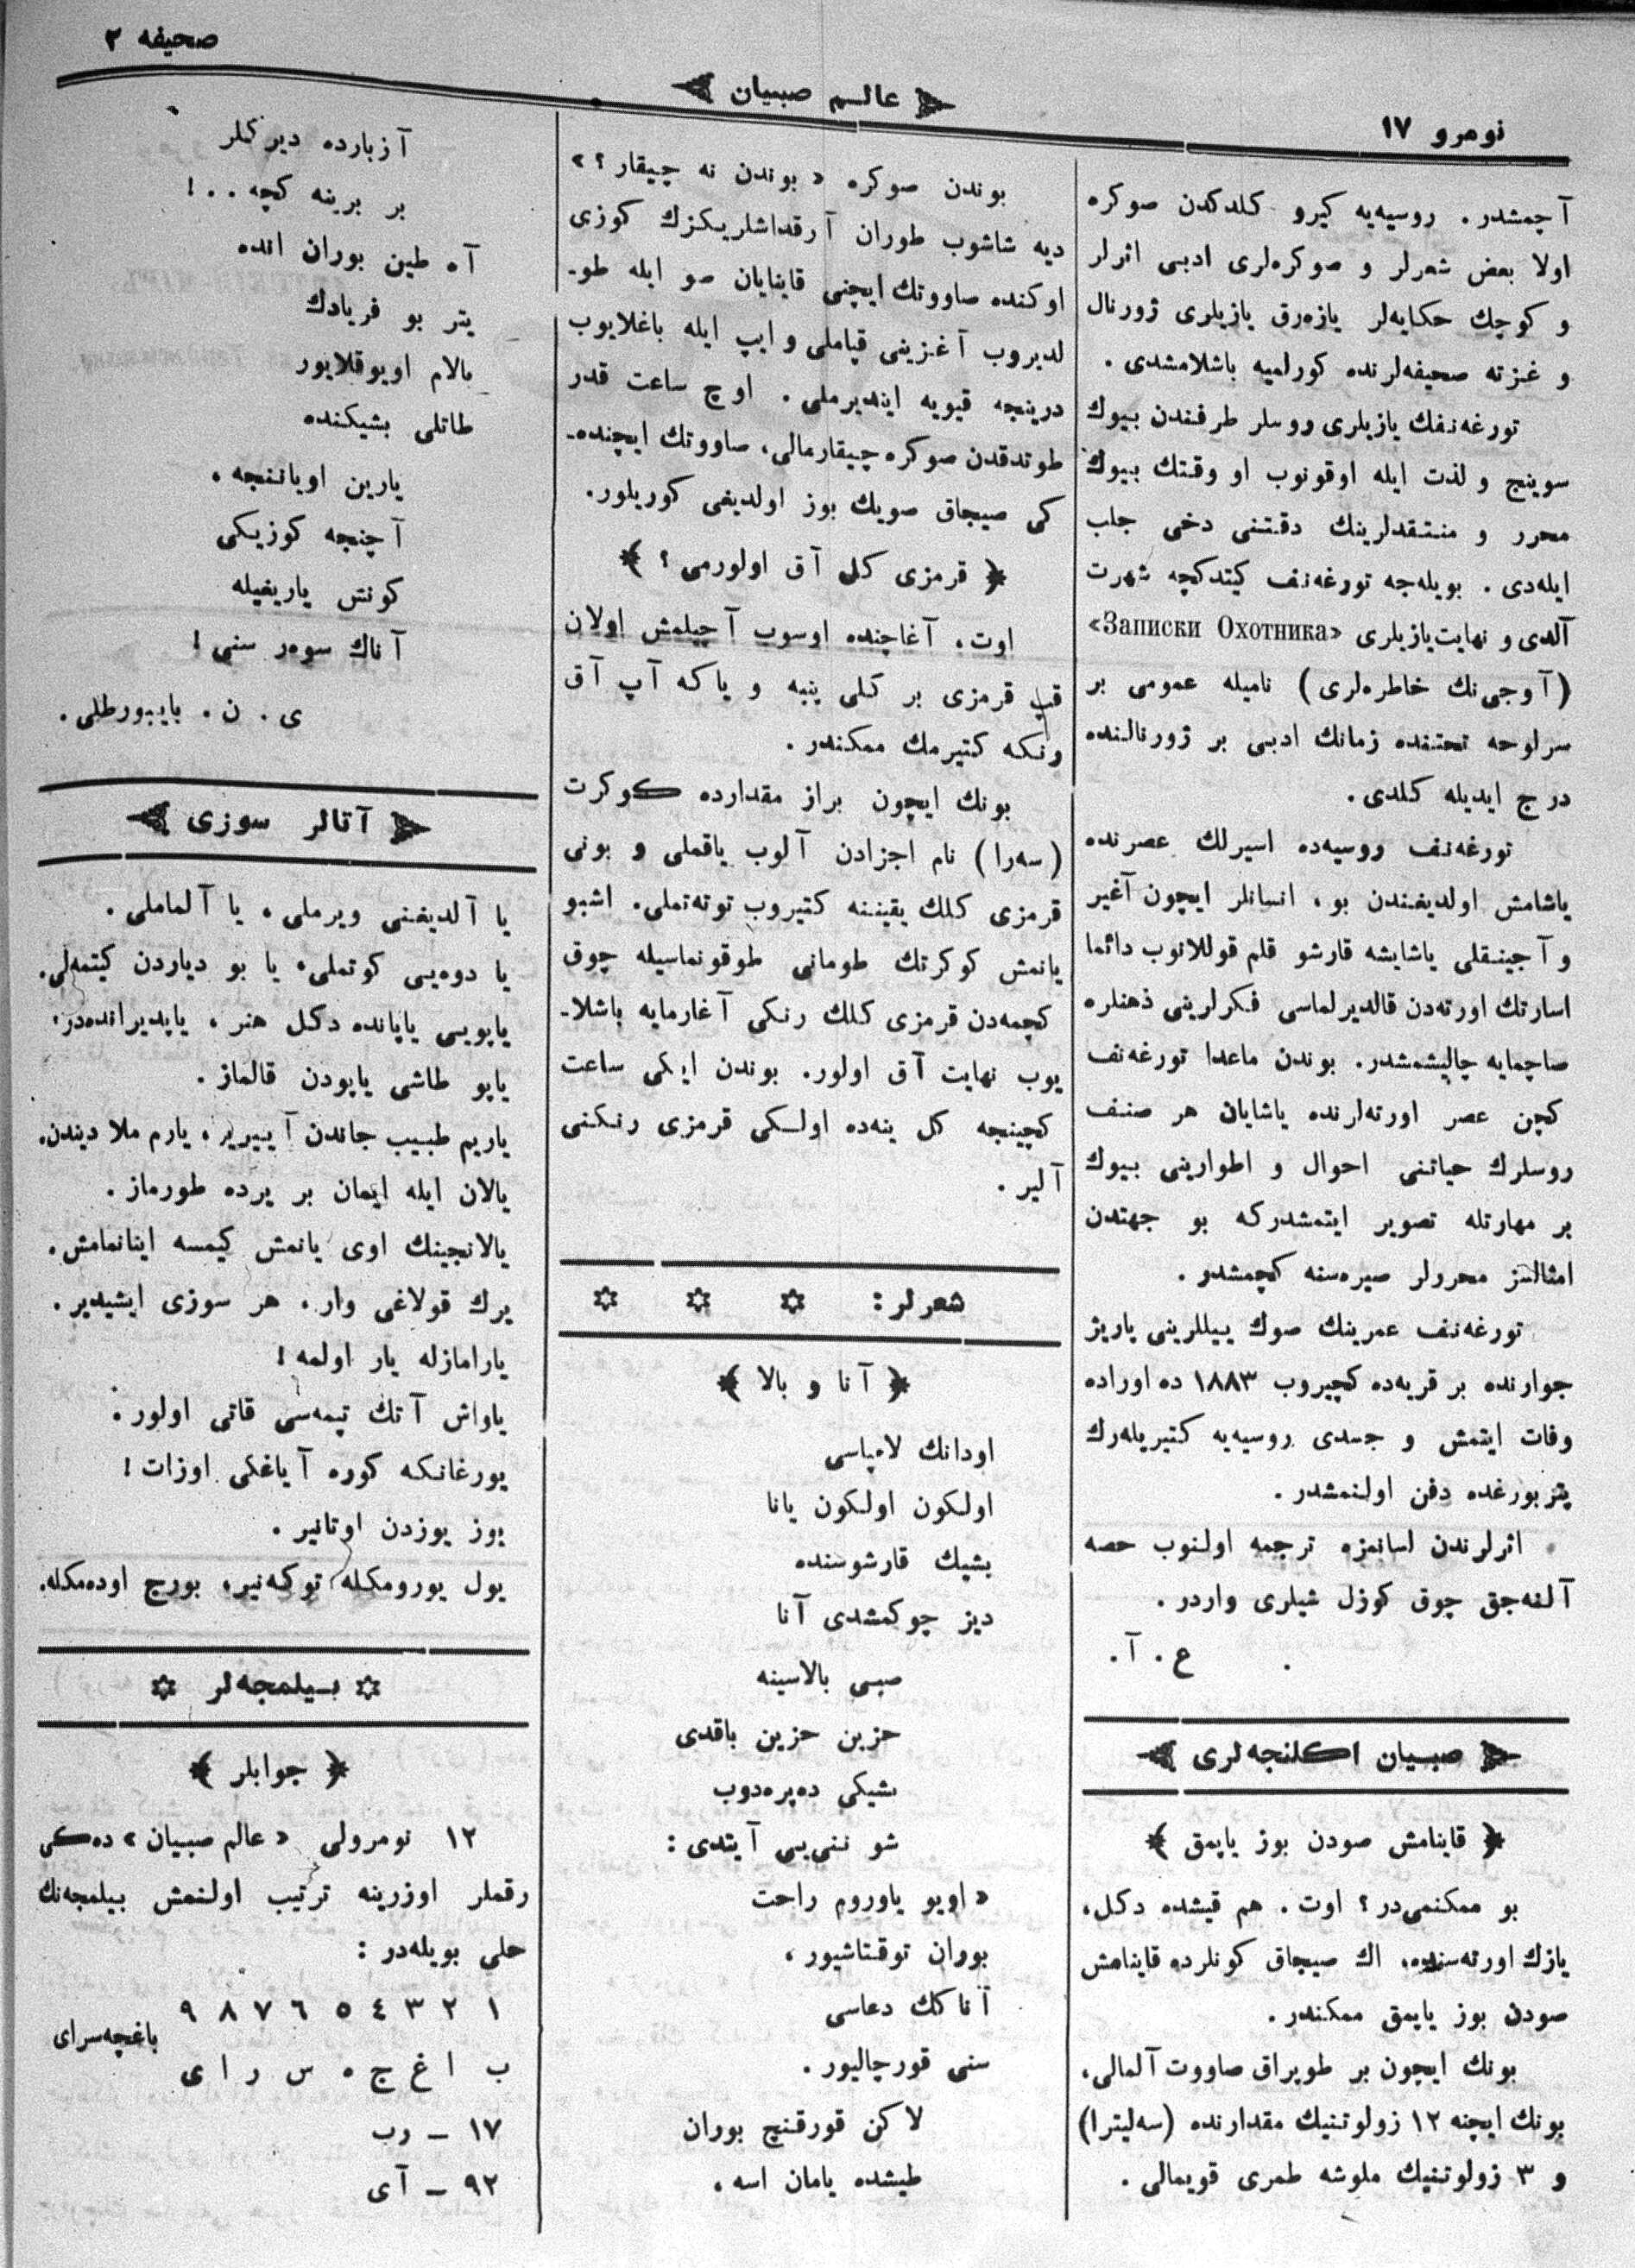 صحیفه ۲
عالم صبیان
نومرو ۱۷
آچمشدر. روسیه‌یه کیرو کلدکدن صوکره
اولا بعض شعرلر و صوکره‌لری ادبی اثرلر
و کوچك حکایه‌لر یازه‌رق یازیلری ژورنال
و غزته صحیفه‌لرنده کورلمیه باشلامشدی.
تورغه‌نفك یازیلری روسلر طرفندن بیوك
سوینج و لذت ایله اوقونوب او وقتك بیوك
محرر و منتقدلرینك دقتنی دخی جلب
ایله‌دی. بویله‌جه تورغه‌نف کیتدکچه شهرت
آلدی و نهایت یازیلری «Записки Охотника»
(آوجی‌نك خاطره‌لری) نامیله عمومی بر
سرلوحه تحتنده زمانك ادبی بر ژورنالنده
درج ایدیله کلدی.
تورغه‌نف روسیه‌ده اسیرلك عصرنده
یاشامش اولدیغندن بو، انسانلر ایچون آغیر
و آجینقلی یاشایشه قارشو قلم قوللانوب دائما
اسارتك اورته‌دن قالدیرلماسی فکرلرینی ذهنلره
صاچمایه چالیشمشدر. بوندن ماعدا تورغه‌نف
کچن عصر اورته‌لرنده یاشایان هر صنف
روسلرك حیاتنی احوال و اطوارینی بیوك
بر مهارتله تصویر ایتمشدرکه بو جهتدن
امثالسز محررلر صیره‌سنه کچمشدر.
تورغه‌نف عمرینك صوك ییللرینی پاریژ
جوارنده بر قریه‌ده کچیروب ۱۸۸۳ ده اوراده
وفات ایتمش و جسدی روسیه‌یه کتیریله‌رك
پتربورغده دفن اولنمشدر.
اثرلرندن لسانمزه ترجمه اولنوب حصه
آلنه‌جق چوق کوزل شیلری واردر.
ع. آ.
صبیان اکلنجه‌لری
﴿ قاینامش صودن بوز یاپمق ﴾
بو ممکنمی‌در؟ اوت. هم قیشده دکل،
یازك اورته‌سنده، اك صیجاق کونلرده قاینامش
صودن بوز یاپمق ممکندر.
بونك ایچون بر طوپراق صاووت آلمالی،
بونك ایچنه ۱۲ زولوتنیك مقدارنده (سه‌لیترا)
و ۳ زولوتنیك ملوشه طمری قویمالی.
بوندن صوکره «بوندن نه چیقار؟»
دیه شاشوب طوران آرقداشلریکزك کوزی
اوکنده صاووتك ایچنی قاینایان صو ایله طو-
لدیروب آغزینی قپاملی و ایپ ایله باغلایوب
درینجه قیویه ایندیرملی. اوچ ساعت قدر
طوتدقدن صوکره چیقارمالی، صاووتك ایچنده-
کی صیجاق صویك بوز اولدیغی کوریلور.
﴿ قرمزی کل آق اولورمی؟ ﴾
اوت، آغاچنده اوسوب آچیلمش اولان
قپ قرمزی بر کلی پنبه و یاکه آپ آق
رنکه کتیرمك ممکندر.
بونك ایچون براز مقدارده کوکرت
(سه‌را) نام اجزادن آلوب یاقملی و بونی
قرمزی کلك یقیننه کتیروب توته‌تملی. اشبو
یانمش کوکرتك طومانی طوقونماسیله چوق
کچمه‌دن قرمزی کلك رنکی آغارمایه باشلا-
یوب نهایت آق اولور. بوندن ایکی ساعت
کچینجه کل ینه‌ده اولکی قرمزی رنکنی
آلیر.
شعرلر:
﴿ آنا و بالا ﴾
اودانك لامپاسی
اولکون اولکون یانا
بشیك قارشوسنده
دیز چوکمشدی آنا
صبی بالاسینه
حزین حزین باقدی
بشیکی ده‌پره‌دوب
شو ننی‌یی آیتدی:
«اویو یاوروم راحت
بوران توقتاشیور،
آناکك دعاسی
سنی قورچالیور.
لاکن قورقنچ بوران
طیشده یامان اسه،
آزبارده دیرکلر
بر برینه کچه..!
آه طین بوران انده
یتر بو فریادك
بالام اویوقلایور
طاتلی بشیکنده
یارین اویاننجه،
آچنجه کوزیکی
کونش یاریغیله
آناك سوه‌ر سنی!
ی. ن. بایبورطلی.
آتالر سوزی
یا آلدیغنی ویرملی، یا آلماملی.
یا دوه‌یی کوتملی، یا بو دیاردن کیتمه‌لی.
یاپویی یاپانده دکل هنر، یاپدیرانده‌در.
یاپو طاشی یاپودن قالماز.
یاریم طبیب جاندن آییریر، یارم ملا دیندن.
یالان ایله ایمان بر یرده طورماز.
یالانجینك اوی یانمش کیمسه اینانمامش.
یرك قولاغی وار، هر سوزی ایشیدیر.
یارامازله یار اولمه!
یاواش آتك تپمه‌سی قاتی اولور.
یورغانکه کوره آیاغکی اوزات!
یوز یوزدن اوتانیر.
یول یورومکله توکه‌نیر، بورج اوده‌مکله.
بیلمجه‌لر
﴿ جوابلر ﴾
۱۲ نومرولی «عالم صبیان» ده‌کی
رقملر اوزرینه ترتیب اولنمش بیلمجه‌نك
حلی بویله‌در:
۱ ۲ ۳ ٤ ٥ ٦ ۷ ۸ ۹
باغچه‌سرای
ب ا غ ج ه س ر ا ی
۱۷ — رب
۹۲ — آی